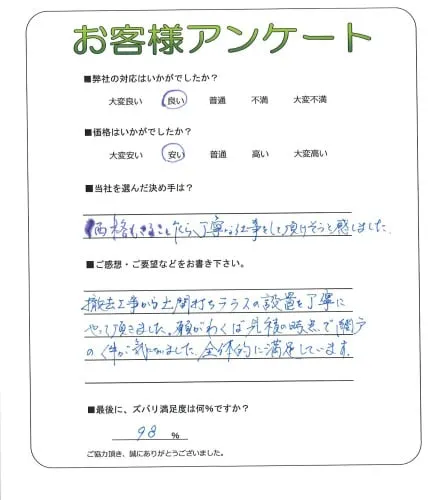 お客様アンケート
■弊社の対応はいかがでしたか?
大変良い 良い 普通 不満 大変不満
■価格はいかがでしたか?
大変安い 安い 普通 高い 大変高い
■当社を選んだ決め手は?
価格もさることながら、丁寧な仕事をして頂けそうと感じました。
■ご感想・ご要望などをお書き下さい。
撤去工事から土間打ちテラスの設置を丁寧に
やって頂きました。願がわくば見積の時点で網戸
の件が気になりました。全体的に満足しています。
■最後に、ズバリ満足度は何%ですか?
98 %
ご協力頂き、誠にありがとうございました。